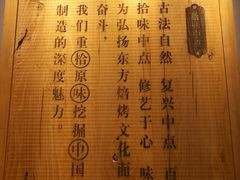 古法自然 复兴中点 百
拾味中点 修艺于心 味
为弘扬东方焙烤文化而
奋斗。
我们重拾原味挖掘中国
制造的深度魅力。